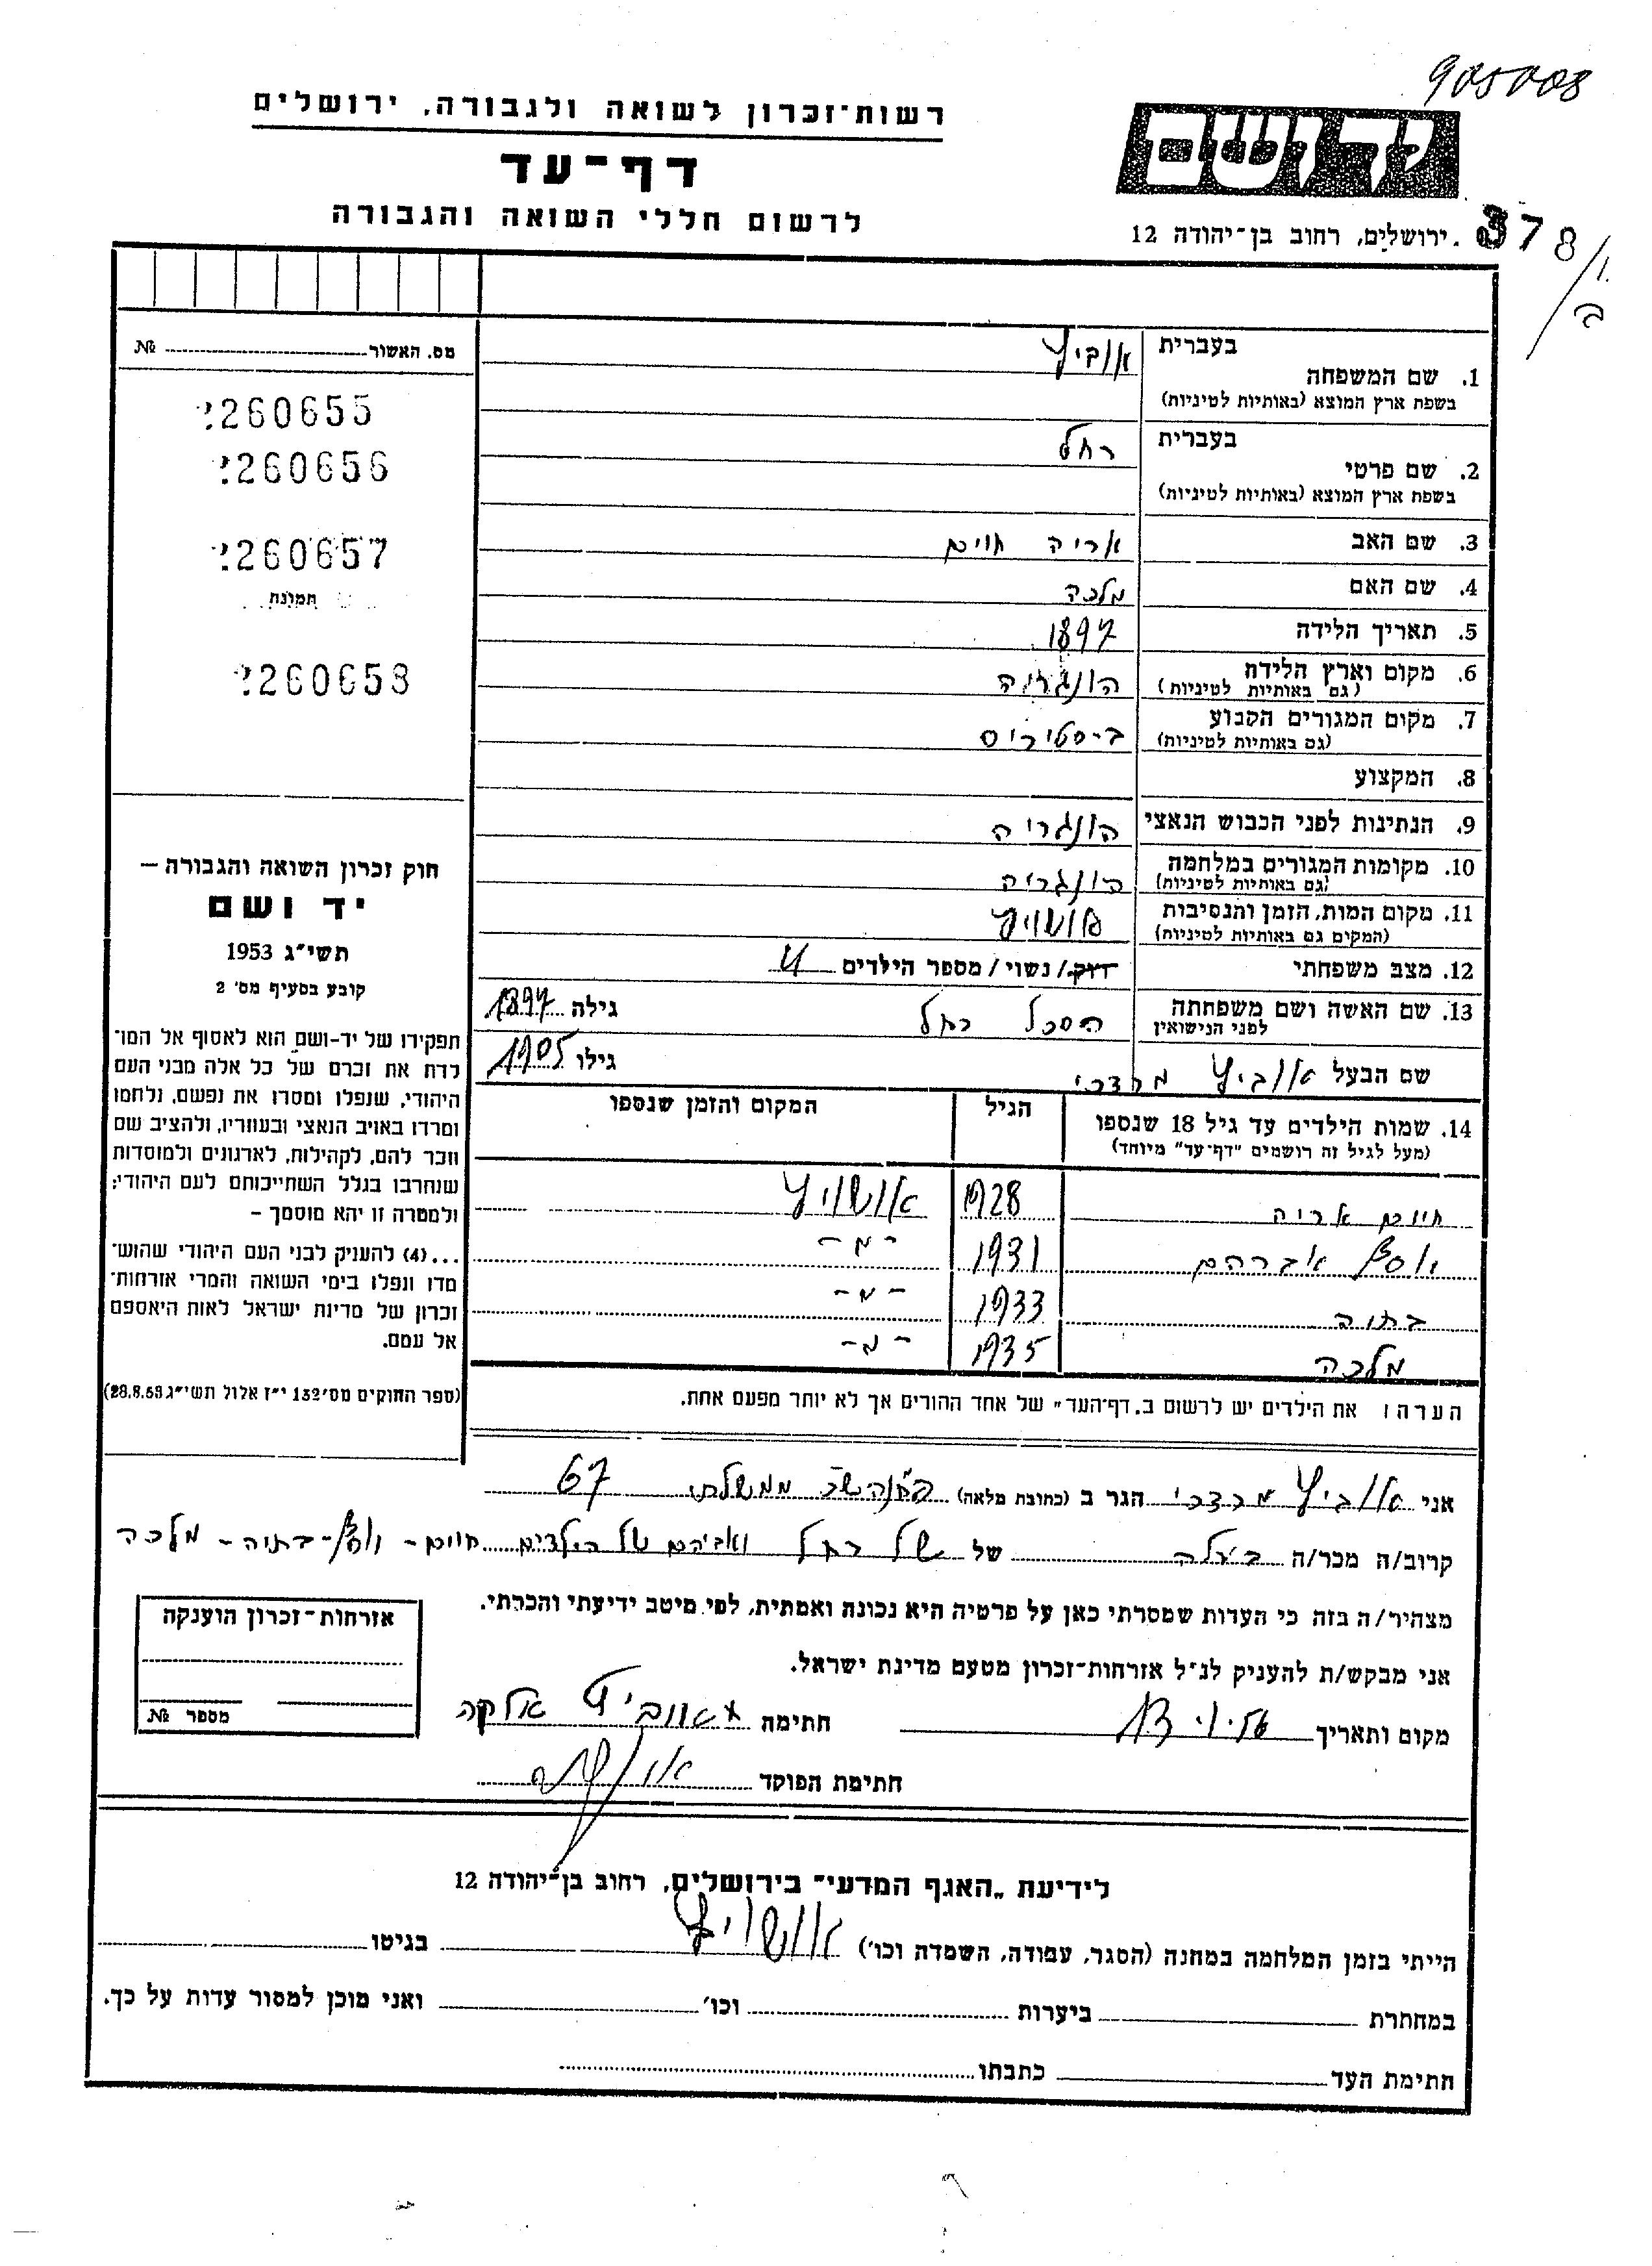 905008
רשות־זכרון לשואה ולגבורה, ירושלים
דף־עד
לרשום חללי השואה והגבורה
ידושם
ירושלים, רחוב בן־יהודה 12
378/1
ב
1. שם המשפחה
בעברית אוביץ
בשפת ארץ המוצא (באותיות לטיניות)
2. שם פרטי
בעברית רחל
בשפת ארץ המוצא (באותיות לטיניות)
3. שם האב אריה חיים
4. שם האם מלכה
5. תאריך הלידה 1897
6. מקום וארץ הלידה הונגריה
(גם באותיות לטיניות)
7. מקום המגורים הקבוע ביסטריס
(גם באותיות לטיניות)
8. המקצוע
9. הנתינות לפני הכבוש הנאצי הונגריה
10. מקומות המגורים במלחמה הונגריה
(גם באותיות לטיניות)
11. מקום המות, הזמן והנסיבות אושויץ
(המקום גם באותיות לטיניות)
12. מצב משפחתי רוק/נשוי/מספר הילדים 4
13. שם האשה ושם משפחתה לפני הנישואין הסכל רחל גילה 1897
שם הבעל אוביץ מרדכי גילו 1905
14. שמות הילדים עד גיל 18 שנספו הגיל המקום והזמן שנספו
(מעל לגיל זה רושמים "דף־עד" מיוחד)
חיים אריה 1928 אושויץ
יוסף אברהם 1931 -״-
בתיה 1933 -״-
מלכה 1935 -״-
הערה: את הילדים יש לרשום ב„דף־העד" של אחד ההורים אך לא יותר מפעם אחת.
מס. האשור № 
260655
260656
260657
תמונת
260658
חוק זכרון השואה והגבורה —
יד ושם
תשי״ג 1953
קובע בסעיף מס׳ 2
תפקידו של יד-ושם הוא לאסוף אל המו־
לדת את זכרם של כל אלה מבני העם
היהודי, שנפלו ומסרו את נפשם, נלחמו
ומרדו באויב הנאצי ובעוזריו, ולהציב שם
וזכר להם, לקהילות, לארגונים ולמוסדות
שנחרבו בגלל השתייכותם לעם היהודי;
ולמטרה זו יהא מוסמך –
...(4) להעניק לבני העם היהודי שהוש־
מדו ונפלו בימי השואה והמרי אזרחות־
זכרון של מדינת ישראל לאות היאספם
אל עמם.
(ספר החוקים מס׳ 132 י״ז אלול תשי״ג 28.8.53)
אני אוביץ מרדכי הגר ב (כתובת מלאה) ממשלתי 67
קרוב/ה מכר/ה בעלה של של רחל ואביהם של הילדים חיים - יוסף - בתיה - מלכה
מצהיר/ה בזה כי העדות שמסרתי כאן על פרטיה היא נכונה ואמתית, לפי מיטב ידיעתי והכרתי.
אני מבקש/ת להעניק לנ״ל אזרחות־זכרון מטעם מדינת ישראל.
מקום ותאריך חתימה
חתימת הפוקד
אזרחות־זכרון הוענקה
מספר №
לידיעת „האגף המדעי" בירושלים, רחוב בן־יהודה 12
הייתי בזמן המלחמה במחנה (הסגר, עבודה, השמדה וכו׳) אושויץ בגיטו
במחתרת ביערות וכו׳ ואני מוכן למסור עדות על כך.
חתימת העד כתבתו